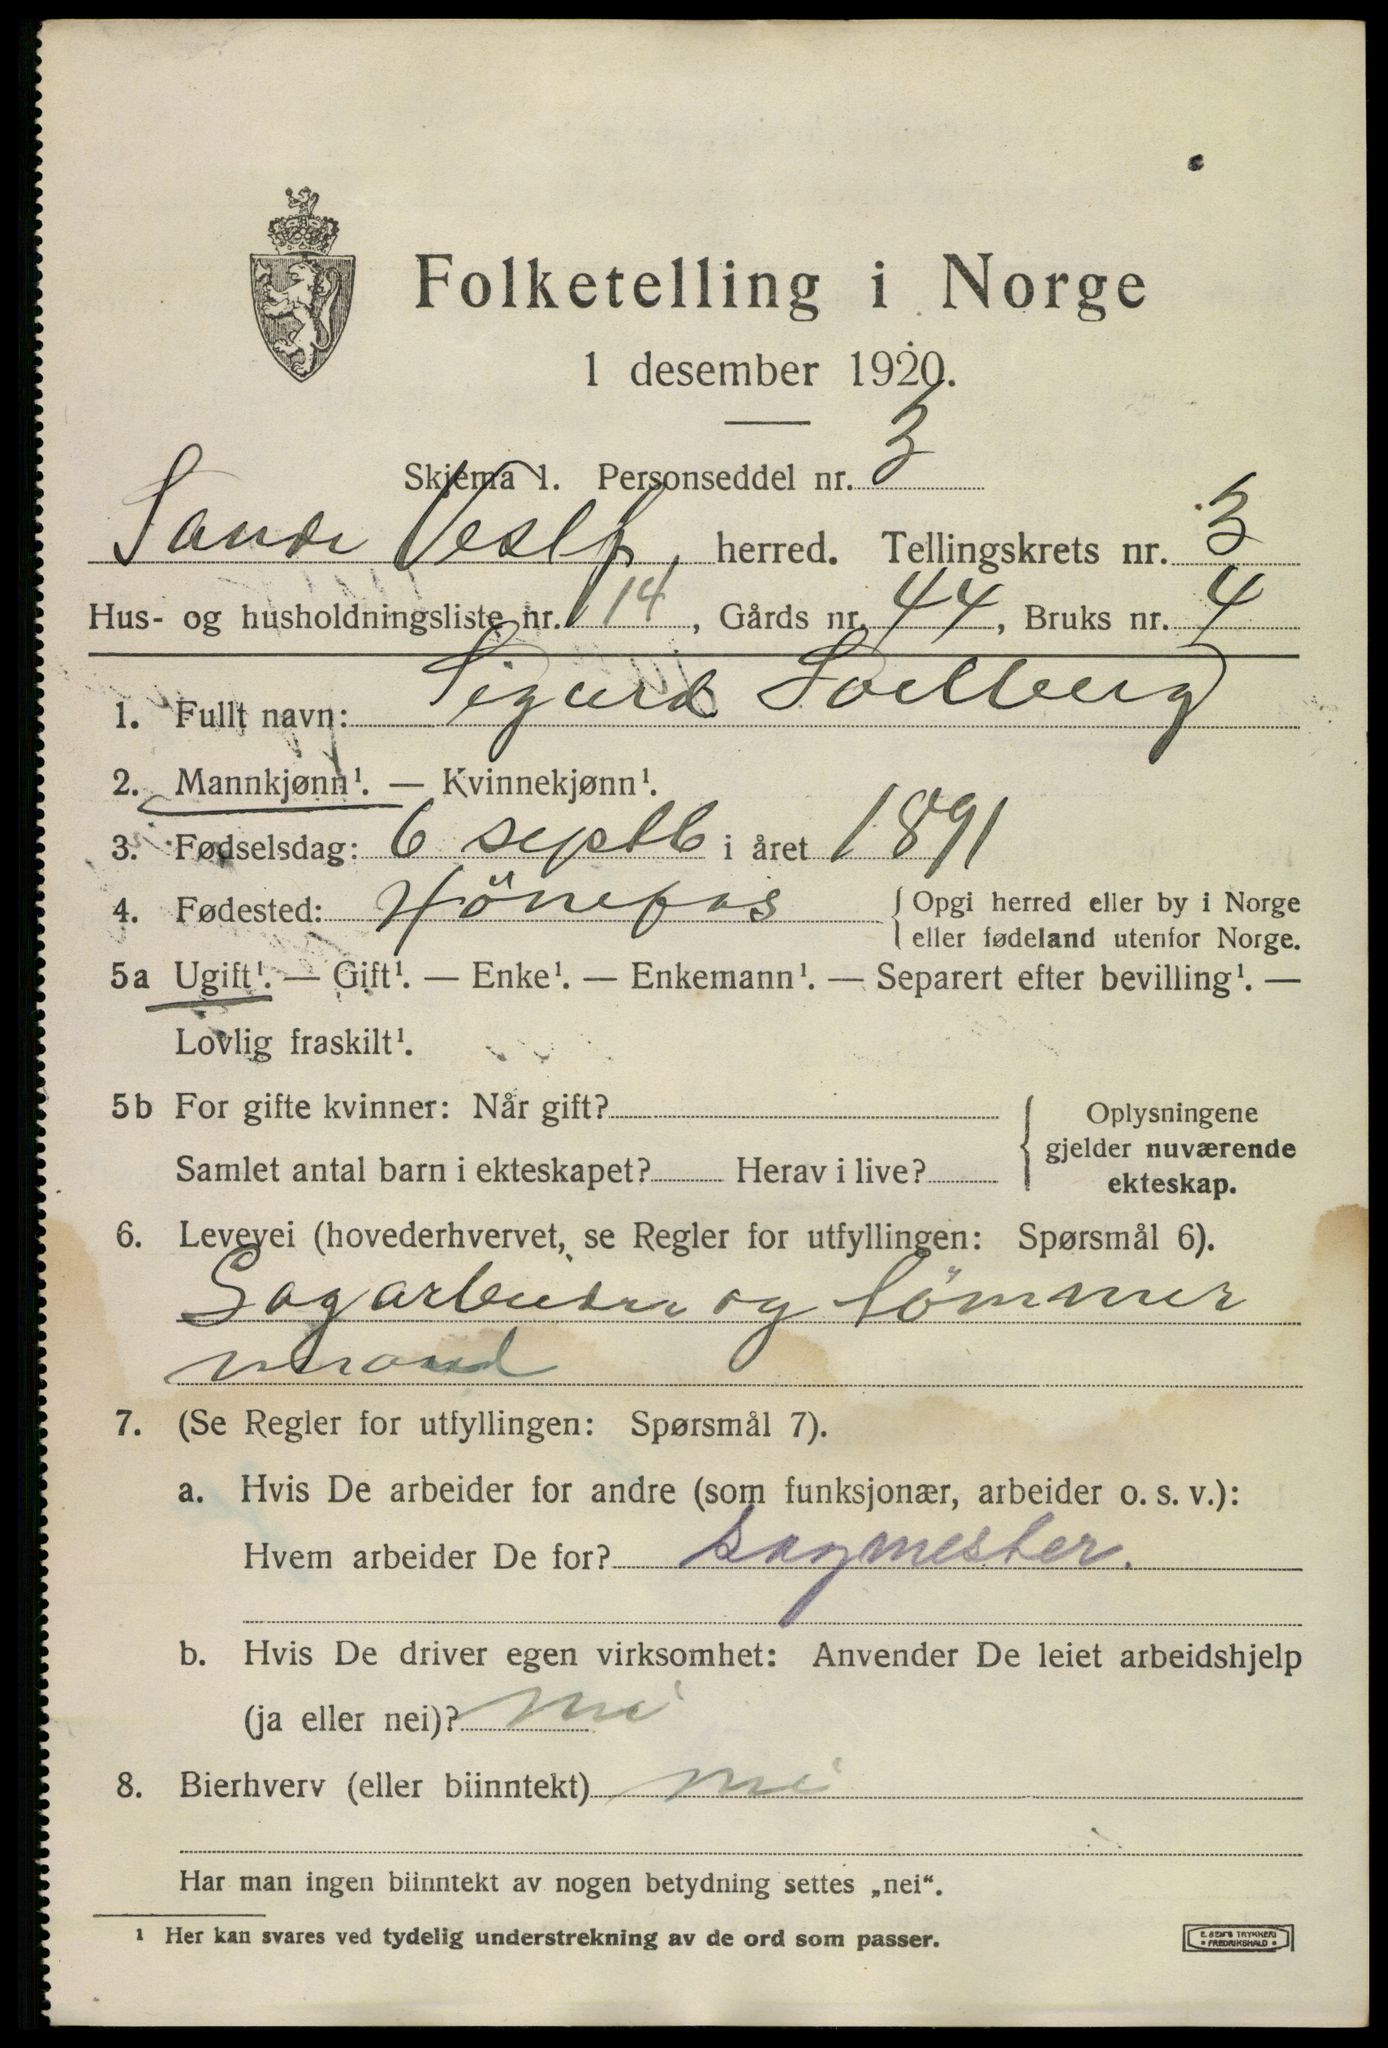 Folketelling i Norge
1 desember 1920.
Skjema 1. Personseddel nr. 3
Sande Vestf. herred. Tellingskrets nr. 3
Hus- og husholdningsliste nr. 114, Gårds nr. 44, Bruks nr. 4
1. Fullt navn: Sigurd Solberg
2. Mannkjønn¹. — Kvinnekjønn¹.
3. Fødselsdag: 6 septb i året 1891
4. Fødested: Hönefos { Opgi herred eller by i Norge
eller fødeland utenfor Norge.
5a Ugift¹. — Gift¹. — Enke¹. — Enkemann¹. — Separert efter bevilling¹. —
Lovlig fraskilt¹.
5b For gifte kvinner: Når gift?
Samlet antal barn i ekteskapet? Herav i live?
{ Oplysningene
gjelder nuværende
ekteskap.
6. Levevei (hovederhvervet, se Regler for utfyllingen: Spørsmål 6).
Sagarbeider og tömmer
mand
7. (Se Regler for utfyllingen: Spørsmål 7).
a. Hvis De arbeider for andre (som funksjonær, arbeider o. s. v.):
Hvem arbeider De for? Sagmester.
b. Hvis De driver egen virksomhet: Anvender De leiet arbeidshjelp
(ja eller nei)? nei
8. Bierhverv (eller biinntekt) nei
Har man ingen biinntekt av nogen betydning settes „nei“.
¹ Her kan svares ved tydelig understrekning av de ord som passer.
E. SEM'S TRYKKERI
FREDRIKSHALD